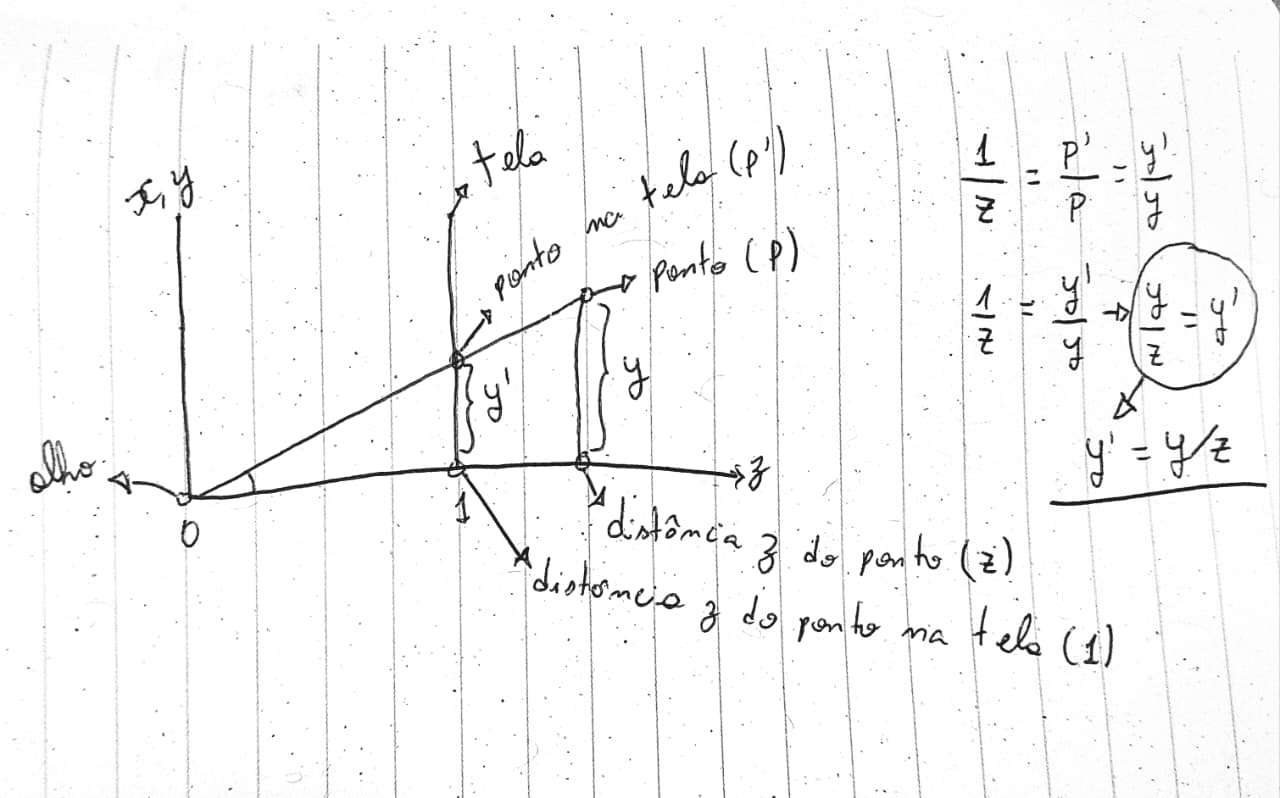 x, y
tela
ponto na tela (p')
ponto (p)
y'
y
olho
0
1
z
distância z do ponto (z)
distância z do ponto na tela (1)
1/z = p'/p = y'/y
1/z = y'/y → y/z = y'
y' = y/z